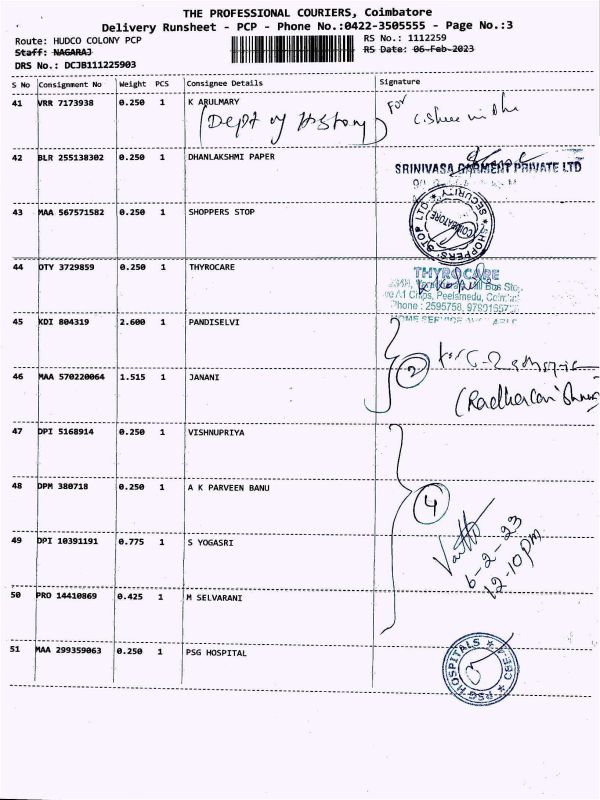 THE PROFESSIONAL COURIERS, Coimbatore
Delivery Runsheet - PCP - Phone No.:0422-3505555 - Page No.:3
Route: HUDCO COLONY PCP
RS No.: 1112259
Staff: NAGARAJ
RS Date: 06-Feb-2023
DRS No.: DCJB111225903
S No Consignment No Weight PCS Consignee Details Signature
41 VRR 7173938 0.250 1 K ARULMARY For
(Dept of History)
42 BLR 255138302 0.250 1 DHANLAKSHMI PAPER
SRINIVASA GARMENT PRIVATE LTD
43 MAA 567571582 0.250 1 SHOPPERS STOP
SHOPPERS' STOP LTD SECURITY
COIMBATORE
44 OTY 3729859 0.250 1 THYROCARE
THYROCARE
Peelamedu,
Phone : 2595758,
45 KDI 804319 2.600 1 PANDISELVI
2
46 MAA 570220064 1.515 1 JANANI
47 DPI 5168914 0.250 1 VISHNUPRIYA
48 DPM 380718 0.250 1 A K PARVEEN BANU
4
49 DPI 10391191 0.775 1 S YOGASRI
6-2-23
12-10pm
50 PRO 14410869 0.425 1 M SELVARANI
51 MAA 299359063 0.250 1 PSG HOSPITAL
PSG HOSPITALS CBE-4